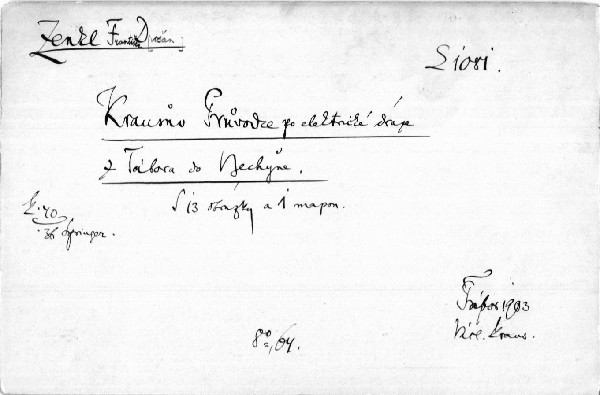 Zenkl František Dušan:
Krausův Průvodce po elektrické dráze
z Tábora do Bechyně.
S 13 obrázky a 1 mapou.
K·70
36 Springer.
Tábor 1903
Kraus.
8°, 64.